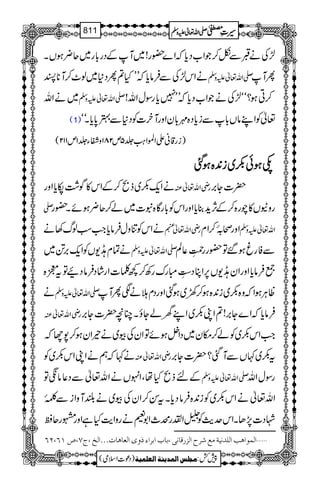 سیرتِ مصطفیٰ صلی اللہ تعالیٰ علیہ وسلم 811
لڑکی نے قبر سے نکل کر جواب دیا کہ اے حضور! میں آپ کے دربار میں حاضر ہوں۔
پھر آپ صلی اللہ تعالیٰ علیہ وسلم نے اس لڑکی سے فرمایا کہ ’’کیا تم پھر دنیا میں لوٹ کر آنا پسند
کرتی ہو؟‘‘ لڑکی نے جواب دیا کہ ’’نہیں یا رسول اللہ! صلی اللہ تعالیٰ علیہ وسلم میں نے اللہ
تعالیٰ کو اپنے ماں باپ سے زیادہ مہربان اور آخرت کو دنیا سے بہتر پایا۔‘‘ (1)
(زرقانی علی المواہب جلد۵ ص۱۸۲ و شفاء جلد۱ ص۲۱۱)
پکی ہوئی بکری زندہ ہوگئی
حضرت جابر رضی اللہ تعالیٰ عنہ نے ایک بکری ذبح کر کے اس کا گوشت پکایا اور
روٹیوں کا چورہ کر کے ثرید بنایا اور اس کو بارگاہِ نبوت میں لے کر حاضر ہوئے۔ حضور صلی
اللہ تعالیٰ علیہ وسلم اور صحابۂ کرام رضی اللہ تعالیٰ عنہم نے اس کو تناول فرمایا جب سب لوگ کھانے
سے فارغ ہو گئے تو حضور رحمتِ عالم صلی اللہ تعالیٰ علیہ وسلم نے تمام ہڈیوں کو ایک برتن میں
جمع فرمایا اور ان ہڈیوں پر اپنا دستِ مبارک رکھ کر کچھ کلمات ارشاد فرما دیئے تو یہ معجزہ
ظاہر ہوا کہ وہ بکری زندہ ہو کر کھڑی ہوگئی اور دم ہلانے لگی پھر آپ صلی اللہ تعالیٰ علیہ وسلم نے
فرمایا کہ اے جابر! تم اپنی بکری اپنے گھر لے جاؤ۔ چنانچہ حضرت جابر رضی اللہ تعالیٰ عنہ
جب اس بکری کو لے کر مکان میں داخل ہوئے تو ان کی بیوی نے حیران ہو کر پوچھا کہ
یہ بکری کہاں سے آ گئی؟ حضرت جابر رضی اللہ تعالیٰ عنہ نے کہا کہ ہم نے اپنی اس بکری کو
رسول اللہ صلی اللہ تعالیٰ علیہ وسلم کے لئے ذبح کیا تھا، انہوں نے اللہ تعالیٰ سے دعا مانگی تو
اللہ تعالیٰ نے اس بکری کو زندہ فرما دیا۔ یہ سن کر ان کی بیوی نے بلند آواز سے کلمۂ
شہادت پڑھا۔ اس حدیث کو جلیل القدر محدث ابو نعیم نے روایت کیا ہے اور مشہور حافظ
......المواهب اللدنية مع شرح الزرقانی، باب ابراء ذوی العاهات...الخ، ج۷، ص ۶۱،۶۲
پیش کش: مجلس المدینة العلمية (دعوتِ اسلامی)